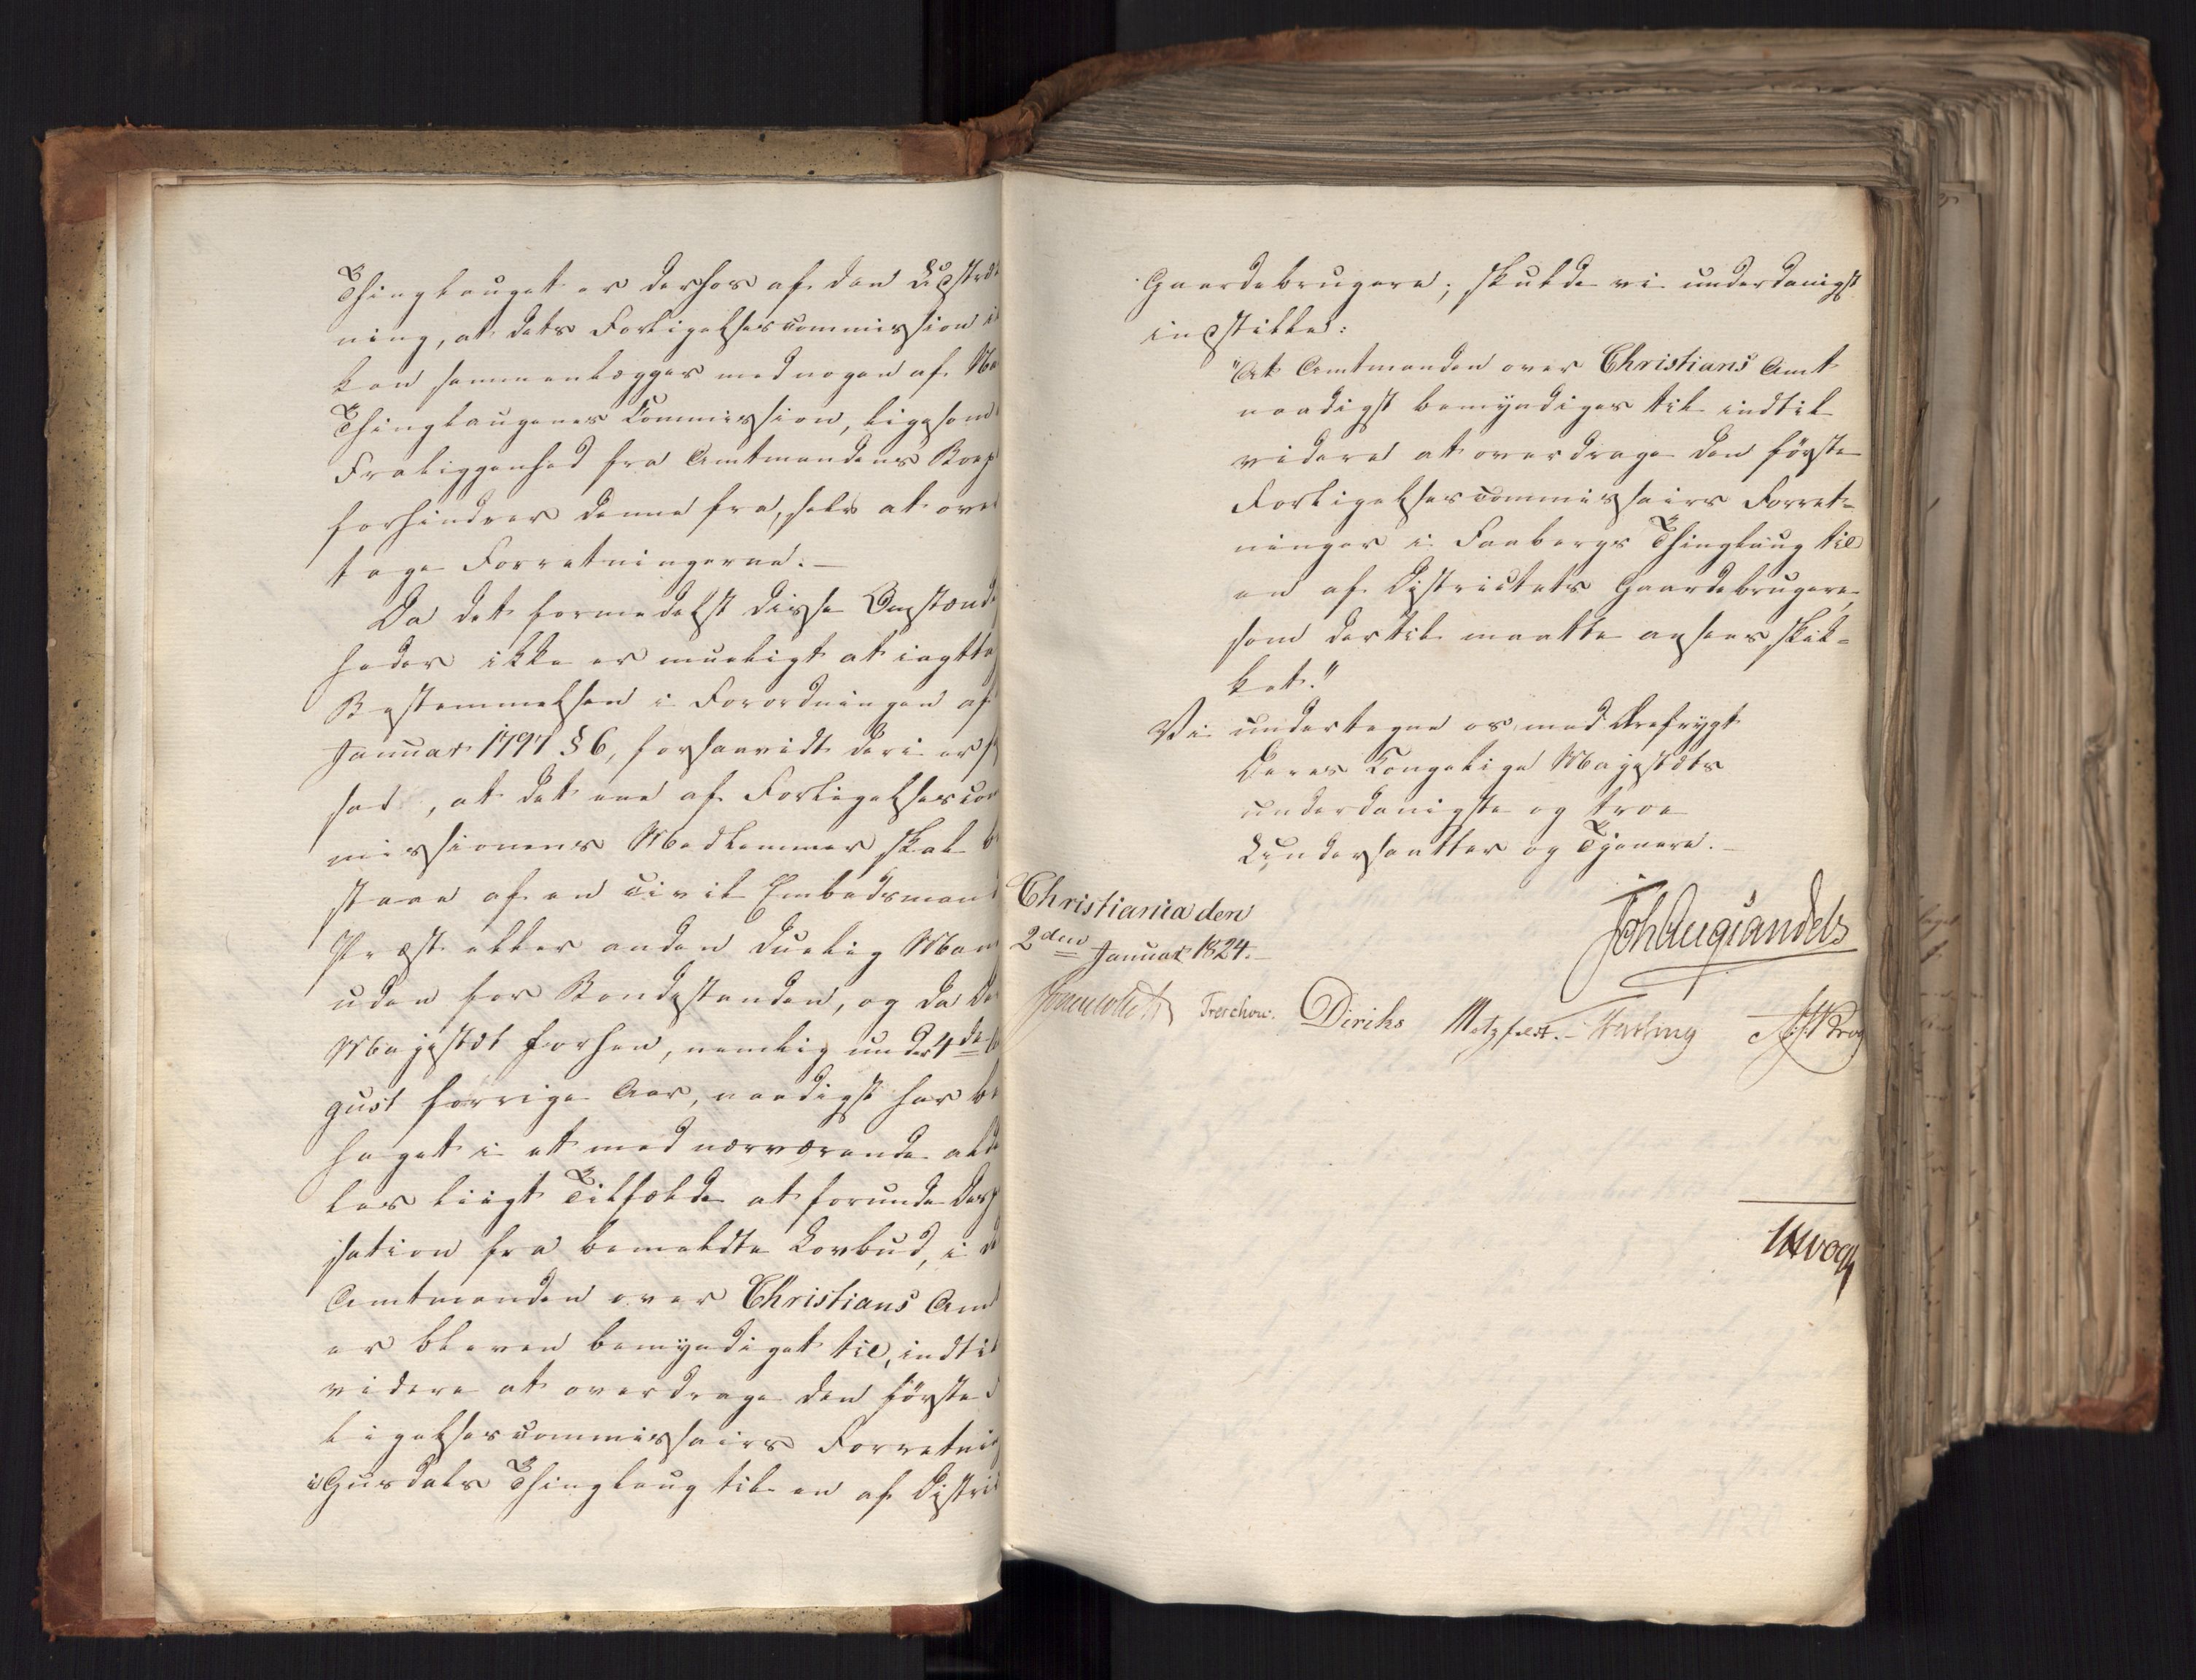 Thinglauget er derhos af den Udstræk
ning, at dets Forligelsescommission i
kan sammenlægges med nogen af Na
Thinglaugenes Commission, ligesom
Fraliggenhed fra Amtmandens Boep
forhindrer denne fra, selv at over
tage Forretningerne. —
Da det formedelst disse Omstænd
heder ikke er mueligt at iagttag
Bestemmelsen i Forordningen af
Januar 1797 § 6, forsaavidt deri er
sad, at det ene af Forligelsescom
missionens Medlemmer skal b
staae af en civil Embedsmand
Præst eller anden duelig Man
uden for Bondestanden, og da De
Majestæt forhen, nemlig under 4de
gust forrige Aar, naadigst har be
haget i et med nærværende alde
les liigt Tilfælde at forunde Disp
sation fra bemeldte Lovbud, i d
Amtmanden over Christians Amt
er bleven bemyndiget til, indtil
videre at overdrage den første
ligelsescommissairs Forretning
i Gusdals Thinglaug til en af Distri
Gaardebrugere; skulde vi underdanigst
indstille:
"At Amtmanden over Christians Amt
naadigst bemyndiges til indtil
videre at overdrage den første
Forligelsescommissairs Forret-
ninger i Faabergs Thinglaug til
en af Districtets Gaardebrugere,
som dertil maatte ansees skik-
ket."
Vi undertegne os med Ærefrygt
Deres Kongelige Majestæts
underdanigste og troe
Undersaatter og Tjenere. —
Christiania den
2den Januar 1824. —
Joh Aug Sandels
Sommerhielm Treschow. Diriks Motzfeldt. Fasting JHVog